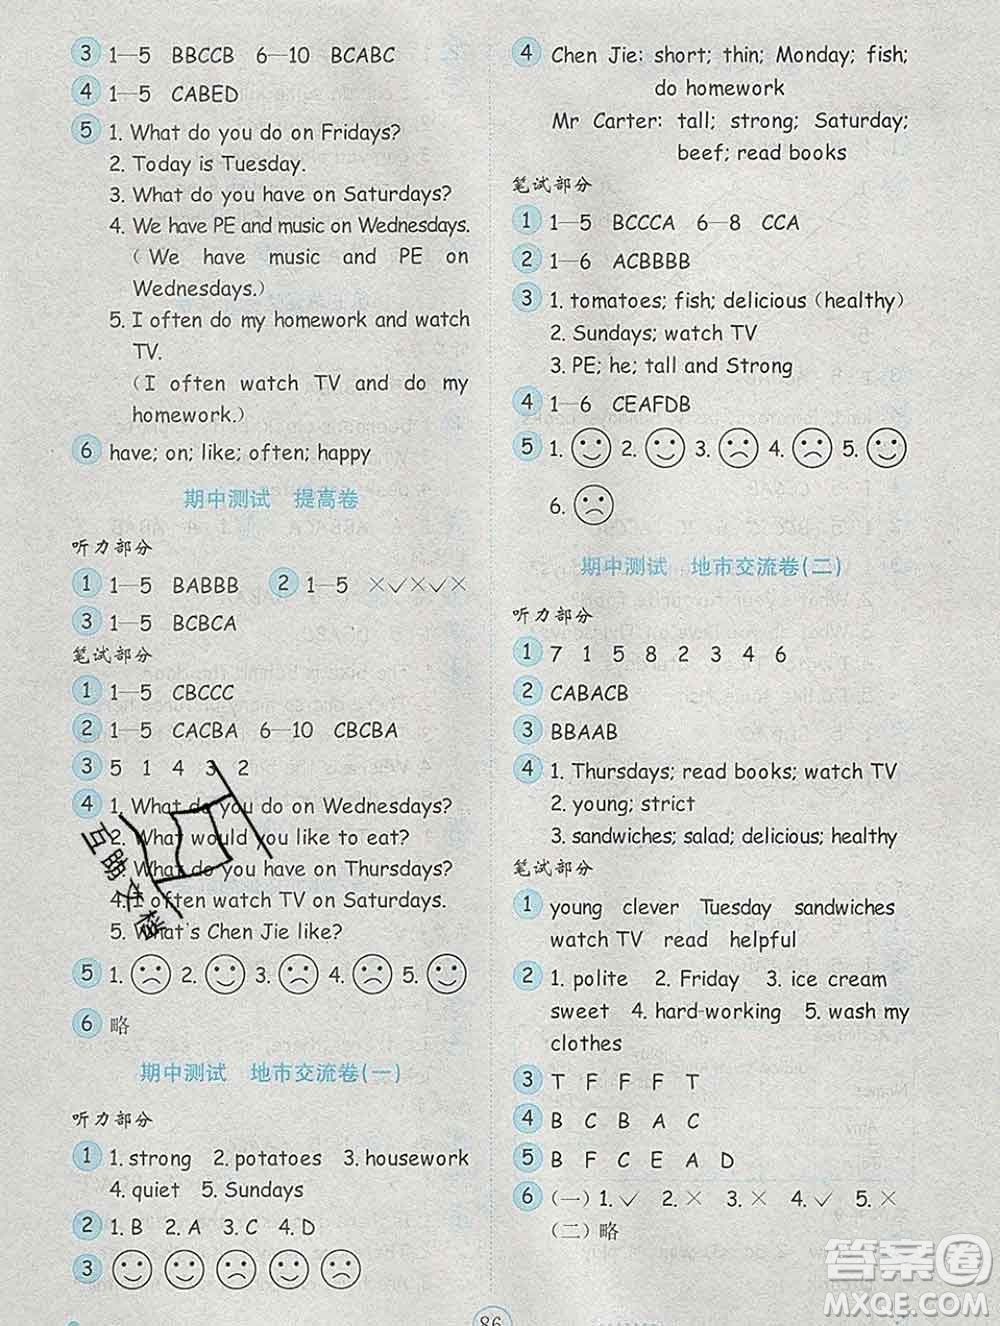 3 1—5 BBCCB 6—10 BCABC
4 1—5 CABED
5 1. What do you do on Fridays?
2. Today is Tuesday.
3. What do you have on Saturdays?
4. We have PE and music on Wednesdays.
(We have music and PE on
Wednesdays.)
5. I often do my homework and watch
TV.
(I often watch TV and do my
homework.)
6 have; on; like; often; happy
期中测试 提高卷
听力部分
1 1—5 BABBB 2 1—5 ×✓×✓×
3 1—5 BCBCA
笔试部分
1 1—5 CBCCC
2 1—5 CACBA 6—10 CBCBA
3 5 1 4 3 2
4 1. What do you do on Wednesdays?
2. What would you like to eat?
3. What do you have on Thursdays?
4. I often watch TV on Saturdays.
5. What's Chen Jie like?
5 1. 2. 3. 4. 5.
6 略
期中测试 地市交流卷(一)
听力部分
1 1. strong 2. potatoes 3. housework
4. quiet 5. Sundays
2 1. B 2. A 3. C 4. D
3
4 Chen Jie: short; thin; Monday; fish;
do homework
Mr Carter: tall; strong; Saturday;
beef; read books
笔试部分
1 1—5 BCCCA 6—8 CCA
2 1—6 ACBBBB
3 1. tomatoes; fish; delicious(healthy)
2. Sundays; watch TV
3. PE; he; tall and Strong
4 1—6 CEAFDB
5 1. 2. 3. 4. 5.
6.
期中测试 地市交流卷(二)
听力部分
1 7 1 5 8 2 3 4 6
2 CABACB
3 BBAAB
4 1. Thursdays; read books; watch TV
2. young; strict
3. sandwiches; salad; delicious; healthy
笔试部分
1 young clever Tuesday sandwiches
watch TV read helpful
2 1. polite 2. Friday 3. ice cream
sweet 4. hard-working 5. wash my
clothes
3 T F F F T
4 B C B A C
5 B F C E A D
6 (一) 1. ✓ 2. × 3. × 4. ✓ 5. ×
(二) 略
86
互助文档
答案圈
MXQE.COM